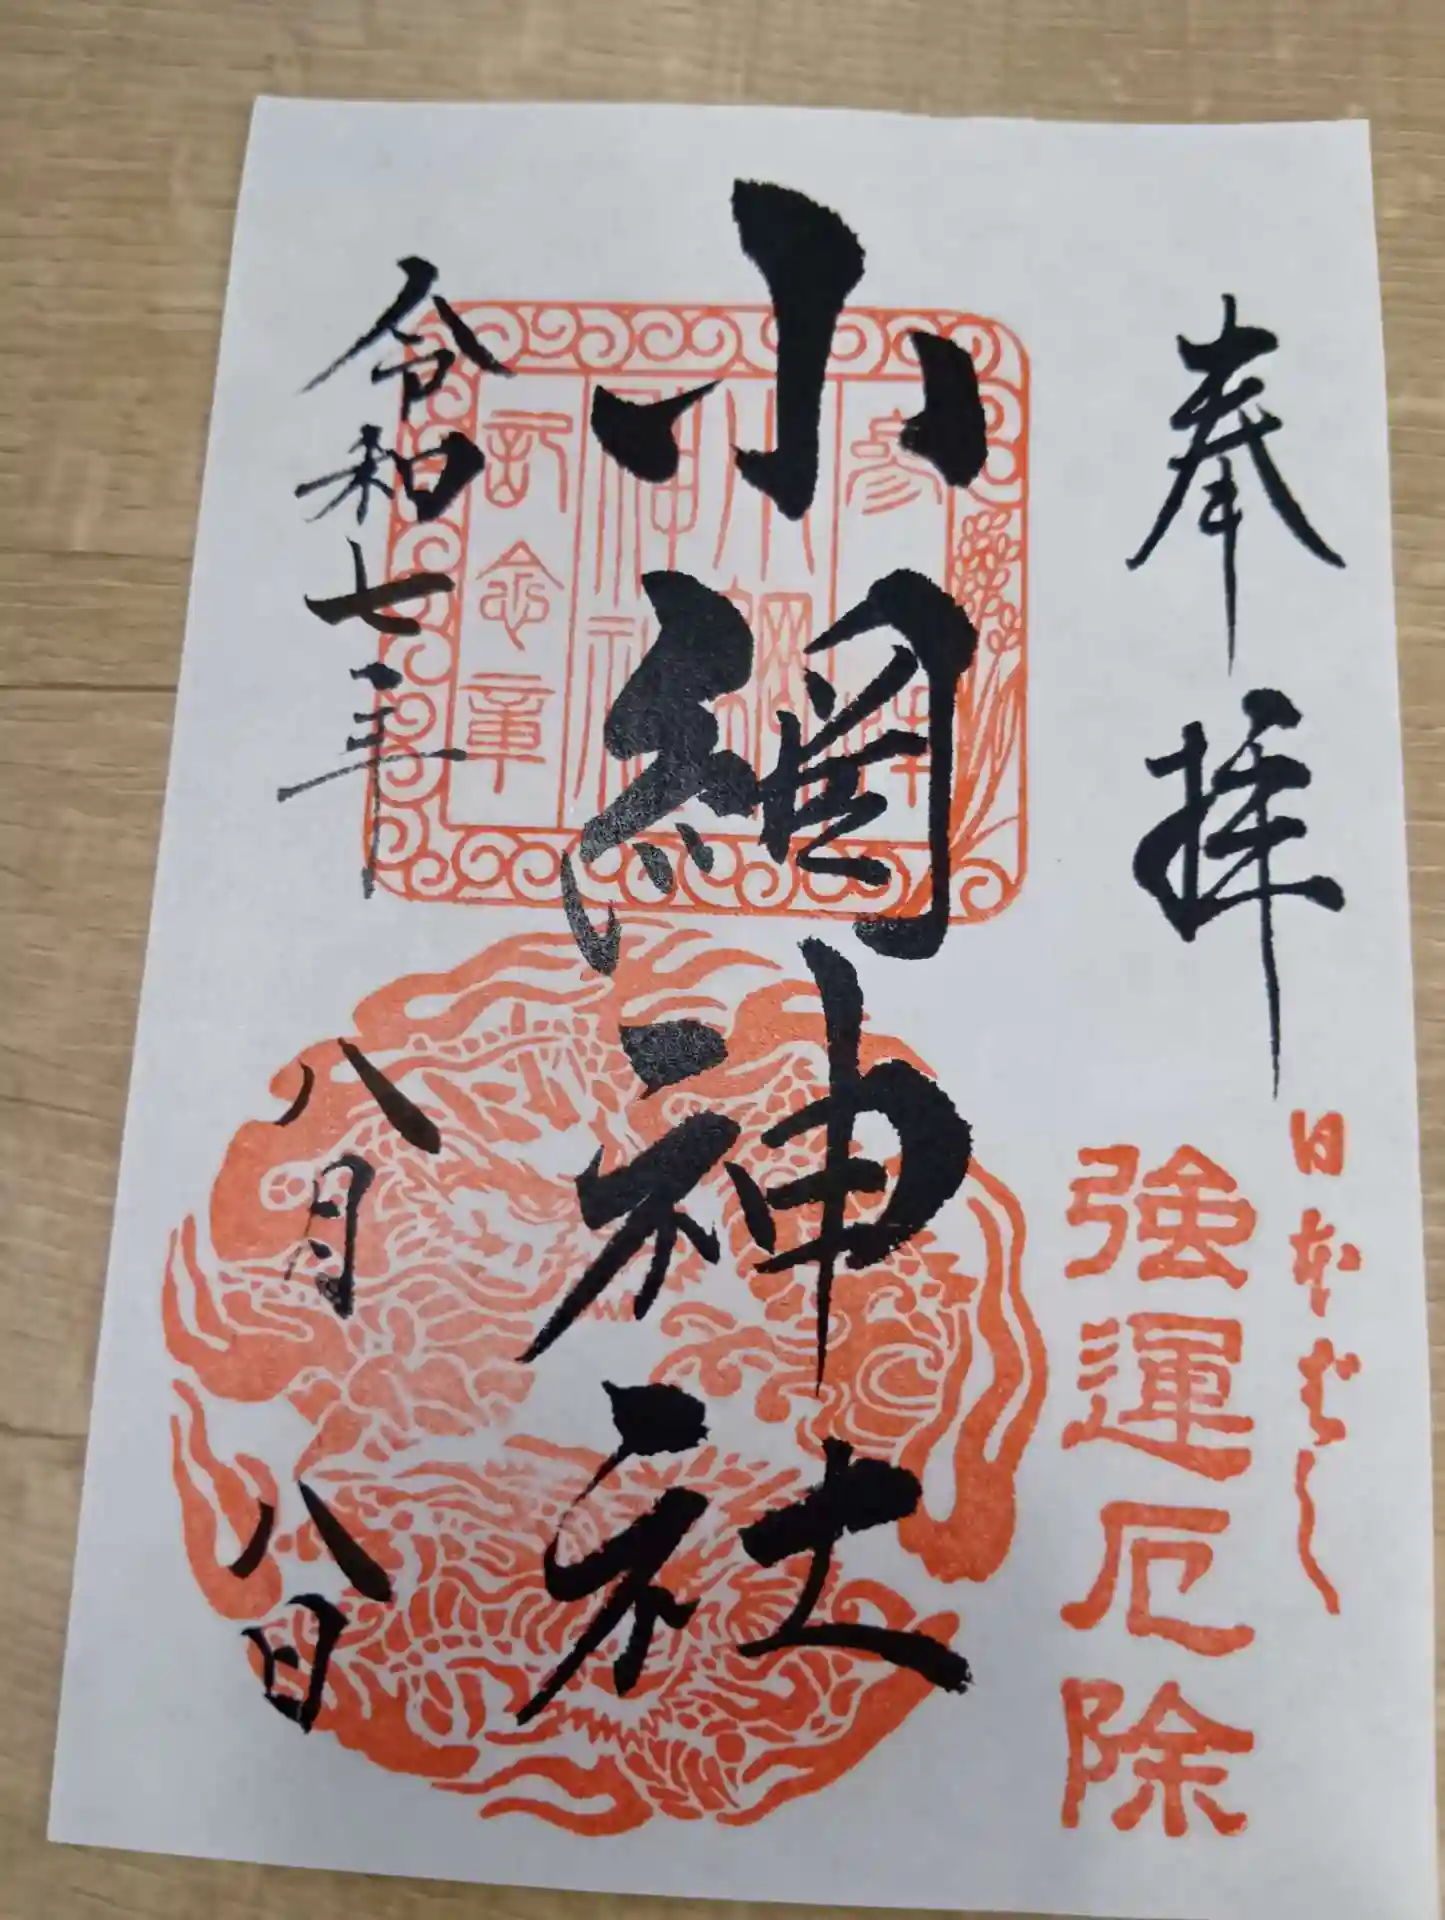 奉拝
日本ばし
強運厄除
小網神社
参拝
小網神社
記念章
令和七年
八月
八日